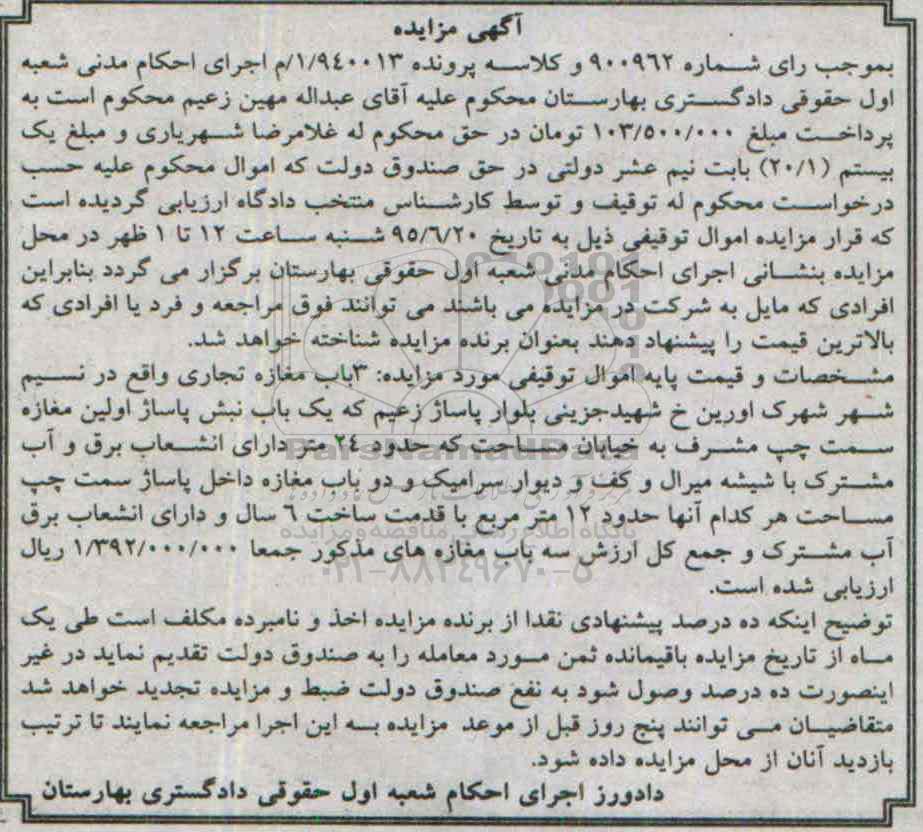 آگهی مزایده
بموجب رای شماره ۹۰۰۹۶۲ و کلاسه پرونده ۱/۹٤۰۰۱۳/م اجرای احکام مدنی شعبه
اول حقوقی دادگستری بهارستان محکوم علیه آقای عبداله مهین زعیم محکوم است به
پرداخت مبلغ ۱۰۳/۵۰۰/۰۰۰ تومان در حق محکوم له غلامرضا شهریاری و مبلغ یک
بیستم (۲۰/۱) بابت نیم عشر دولتی در حق صندوق دولت که اموال محکوم علیه حسب
درخواست محکوم له توقیف و توسط کارشناس منتخب دادگاه ارزیابی گردیده است
که قرار مزایده اموال توقیفی ذیل به تاریخ ۹۵/٦/۲۰ شنبه ساعت ۱۲ تا ۱ ظهر در محل
مزایده بنشانی اجرای احکام مدنی شعبه اول حقوقی بهارستان برگزار می گردد بنابراین
افرادی که مایل به شرکت در مزایده می باشند می توانند فوق مراجعه و فرد یا افرادی که
بالاترین قیمت را پیشنهاد دهند بعنوان برنده مزایده شناخته خواهد شد.
مشخصات و قیمت پایه اموال توقیفی مورد مزایده: ۳باب مغازه تجاری واقع در نسیم
شهر شهرک اورین خ شهیدجزینی بلوار پاساژ زعیم که یک باب نبش پاساژ اولین مغازه
سمت چپ مشرف به خیابان مساحت که حدود ۲٤ متر دارای انشعاب برق و آب
مشترک با شیشه میرال و کف و دیوار سرامیک و دو باب مغازه داخل پاساژ سمت چپ
مساحت هر کدام آنها حدود ۱۲ متر مربع با قدمت ساخت ٦ سال و دارای انشعاب برق
آب مشترک و جمع کل ارزش سه باب مغازه های مذکور جمعا ۱/۳۹۲/۰۰۰/۰۰۰ ریال
ارزیابی شده است.
توضیح اینکه ده درصد پیشنهادی نقدا از برنده مزایده اخذ و نامبرده مکلف است طی یک
ماه از تاریخ مزایده باقیمانده ثمن مورد معامله را به صندوق دولت تقدیم نماید در غیر
اینصورت ده درصد وصول شود به نفع صندوق دولت ضبط و مزایده تجدید خواهد شد
متقاضیان می توانند پنج روز قبل از موعد مزایده به این اجرا مراجعه نمایند تا ترتیب
بازدید آنان از محل مزایده داده شود.
دادورز اجرای احکام شعبه اول حقوقی دادگستری بهارستان
ParsNamadData
پایگاه اطلاع رسانی مناقصه و مزایده
۰۲۱-۸۸۳٤۹٦۷۰-۵